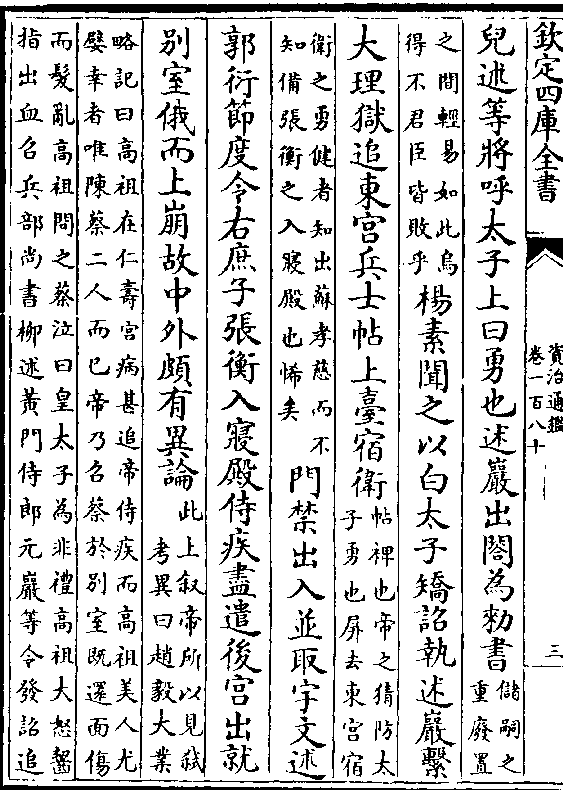 欽定四庫全書
資治通鑑
卷一百八十
三
兒述等將呼太子上曰勇也述巖出閤為勑書
儲嗣之
重廢置
之間輕易如此烏
得不君臣皆敗乎
楊素聞之以白太子矯詔執述巖繫
大理獄追東宮兵士帖上臺宿衛
帖裨也帝之猜防太
子勇也屏去東宮宿
衛之勇健者知出蘇孝慈而不
知備張衡之入寢殿也悕矣
門禁出入並取宇文述
郭衍節度令右庶子張衡入寢殿侍疾盡遣後宮出就
別室俄而上崩故中外頗有異論
此上叙帝所以見弑
考異曰趙毅大業
略記曰高祖在仁壽宮病甚追帝侍疾而高祖美人尤
嬖幸者唯陳蔡二人而已帝乃召蔡於別室既還面傷
而髮亂高祖問之蔡泣曰皇太子為非禮高祖大怒齧
指出血召兵部尚書柳述黃門侍郎元巖等令發詔追